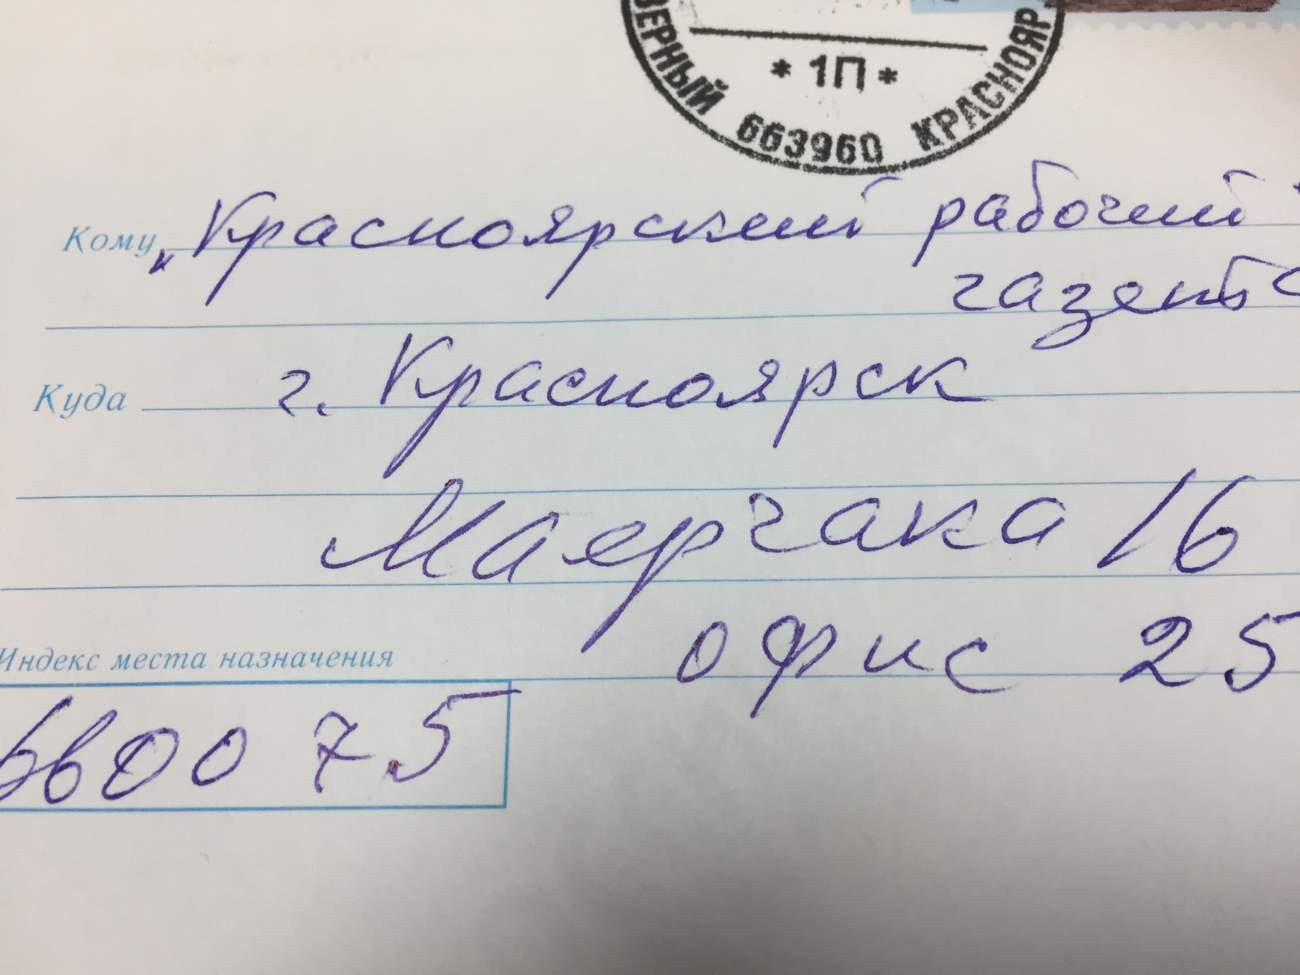 ВЕРНЫЙ 663960 КРАСНОЯР
* 1П *
Кому „Красноярский рабочий"
газета
Куда г. Красноярск
Маерчака 16
офис 25
Индекс места назначения
660075